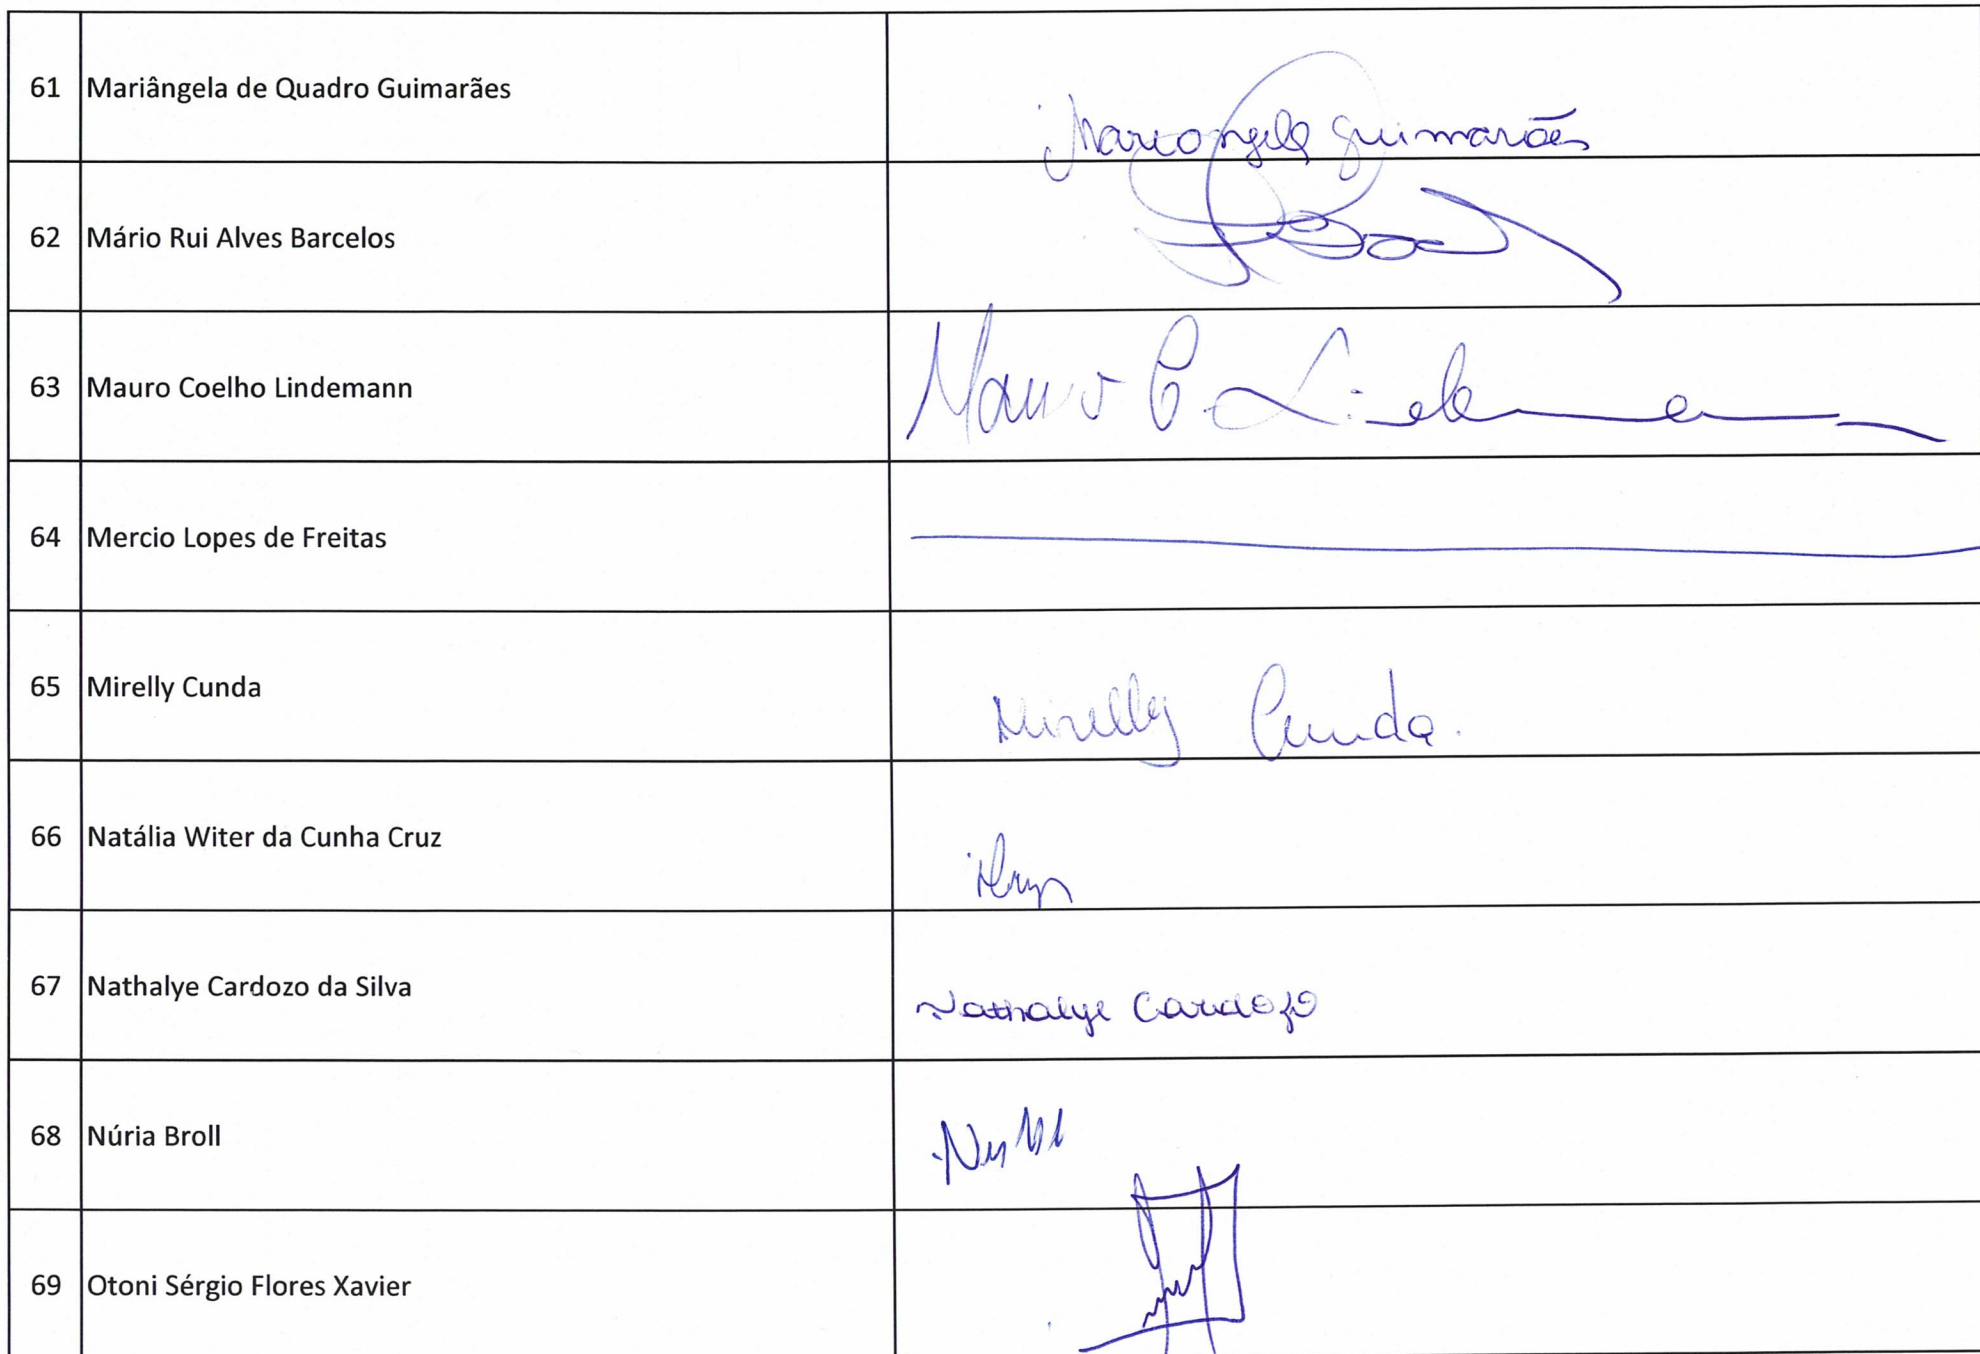 61 Mariângela de Quadro Guimarães Mariangela Guimarães
62 Mário Rui Alves Barcelos
63 Mauro Coelho Lindemann Mauro C. Lindemann
64 Mercio Lopes de Freitas
65 Mirelly Cunda Mirelly Cunda.
66 Natália Witer da Cunha Cruz
67 Nathalye Cardozo da Silva Nathalye Cardozo
68 Núria Broll
69 Otoni Sérgio Flores Xavier